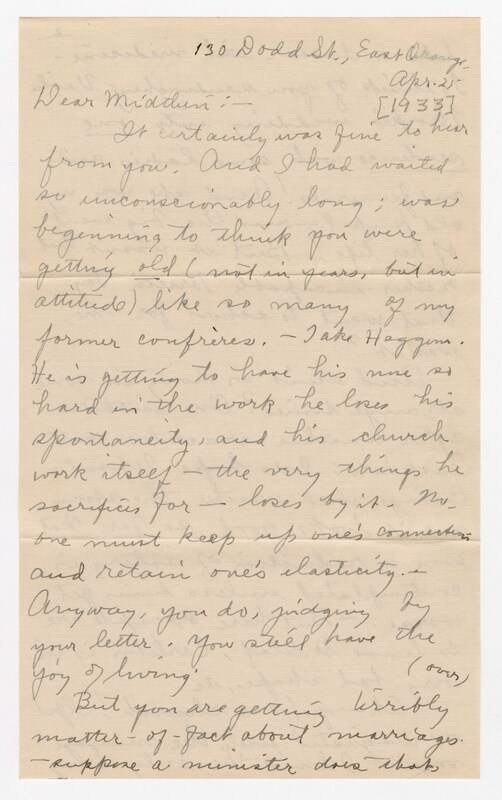 130 Dodd St., East Orange,
Apr. 25
[1933]
Dear Midtlien :—
It certainly was fine to hear
from you. And I had waited
so unconscionably long; was
beginning to think you were
getting old (not in years, but in
attitude) like so many of my
former confrères. — Take Haggen.
He is getting to have his nose so
hard in the work he loses his
spontaneity, and his church
work itself — the very things he
sacrifices for — loses by it. No.
one must keep up one's connections
and retain one's elasticity. —
Anyway, you do, judging by
your letter. You still have the
joy of living.
(over)
But you are getting terribly
matter-of-fact about marriages.
— suppose a minister does that.